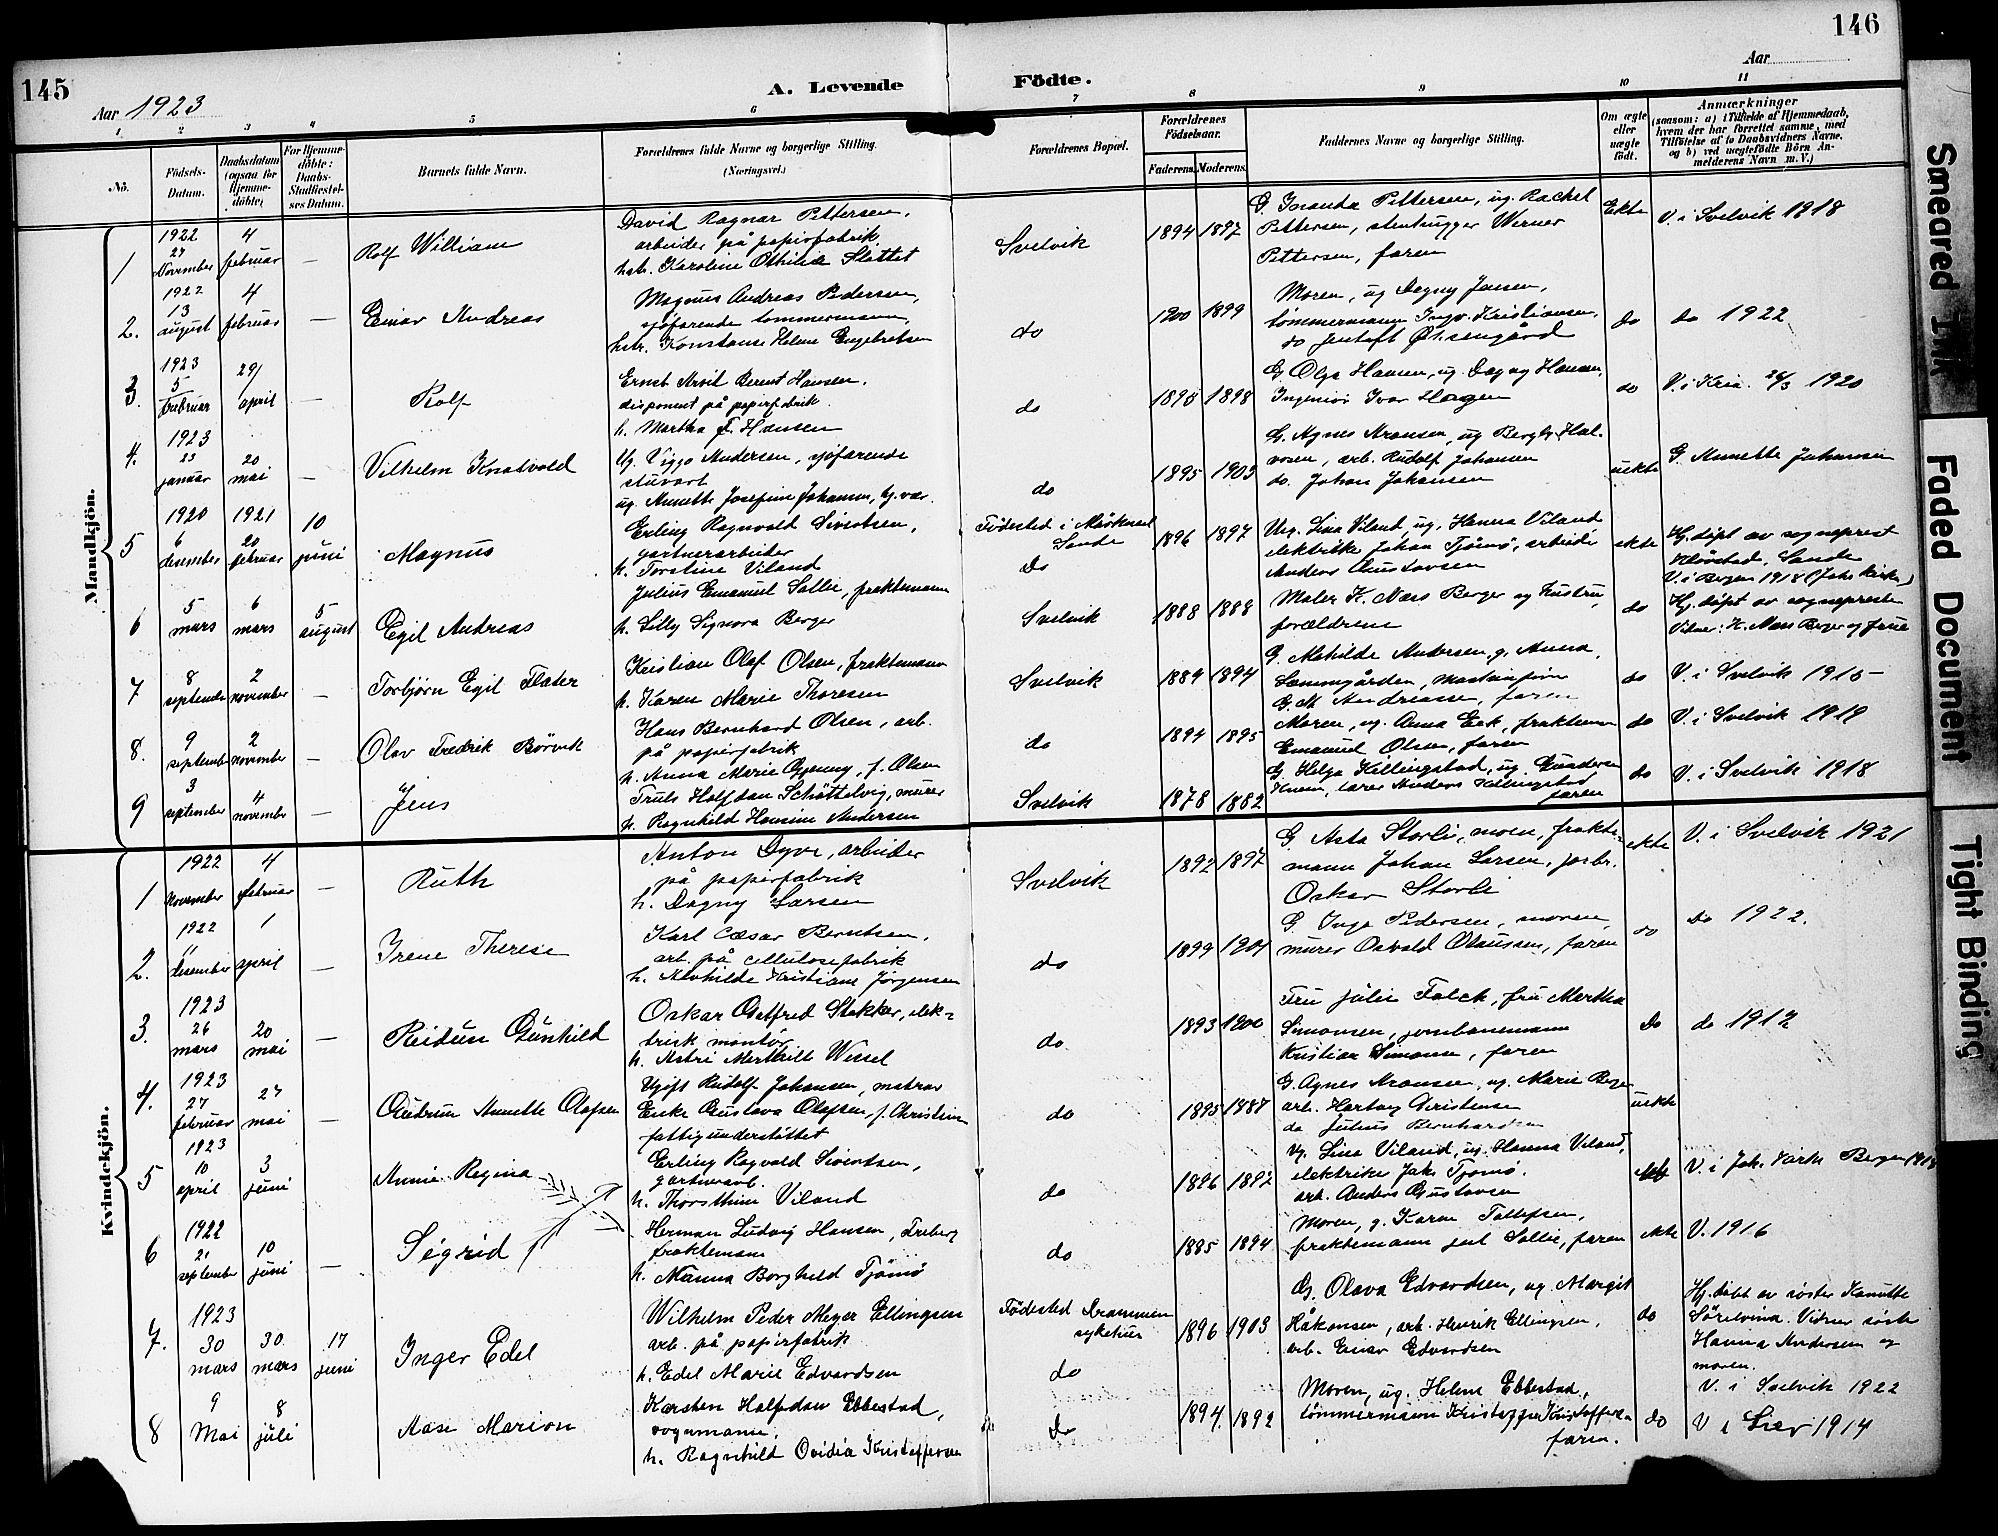 145
146
A. Levende
Födte.
Aar 1923
Aar
1 2 3 4 5 6 7 8 9 10 11
No.
Födsels-
Datum.
Daabsdatum
(ogsaa for
Hjemme-
döbte)
For Hjemme-
döbte:
Daabs-
Stadfæstel-
ses Datum.
Barnets fulde Navn.
Forældrenes fulde Navne og borgerlige Stilling.
(Næringsvei.)
Forældrenes Bopæl.
Forældrenes
Födselsaar.
Faderens.
Moderens.
Faddernes Navne og borgerlige Stilling.
Om ægte
eller
uægte
födt.
Anmærkninger
(saasom: a) i Tilfælde af Hjemmedaab,
hvem der har forrettet samme, med
Tilföielse af to Daabsvidners Navne,
og b) ved uægtefödte Börn An-
melderens Navn m. V.)
Mandkjön.
1
1922
27
November
4
februar
—
Rolf William
David Ragnar Pettersen,
arbeider på papirfabrik
hstr. Karoline Othilde Slottet
Svelvik
1894
1897
G. Jnanda Pettersen, ug. Rachel
Pettersen, stenhugger Werner
Pettersen, faren
Ekte
V. i Svelvik 1918
2.
1922
13
august
4
februar
—
Einar Andreas
Magnus Andreas Pedersen,
sjöfarende tømmermann,
hstr. Konstanse Helene Engebretsen
do
1900
1899
Moren, ug Dagny Jansen,
tømmermann Ingv. Kristiansen,
do
do 1922
3.
1923
5
februar
29/
april
—
Rolf
Ernst Arvid Bernt Hansen,
disponent på papirfabrik.
h. Martha F. Hansen
do
1895
1898
G. Olga Hansen, ug. Dagny Hansen,
Ingeniør Ivar Hagen
do
V. i Kria. 26/3 1920
4.
1923
23
januar
20
mai
—
Vilhelm Knatvold
Ug. Viggo Andersen, sjöfarende
stuvart
ug. Annette Josefine Johansen, hj. vær.
do
1895
1903
G. Agnes Aronsen, ug Bergly Hal-
vosen, arb. Rudolf Johansen
do. Johan Johansen
uekte
G. Annette Johansen
5
1920
6
desember
1921
20
februar
10
juni
Magnus
Erling Ragnvald Sivertsen,
gartnerarbeider
h. Torstine Viland
Födested i
Sande
Do
1896
1897
Ug. Lina Viland ug. Hanna Viland
elektrike Johan Tjömö, arbeide
Anders Gustavsen
ekte
Hj. döpt av sogneprest
Klövstad, Sande
V. i Bergen 1918 (Johs kirke)
6
5
mars
6
mars
5
august
Egil Andreas
Julius Emanuel Sollie, fraktemann
h. Lilly Signora Berger
Svelvik
1888
1888
Maler K. Nars Berger og hustru,
forældrene
do
Hj. döpt av sogneprest
Vitner: K. Nars Berger og frue
7
8
september
2
november
—
Torbjørn Egil Flater
Kristian Olaf Olsen, fraktemann
h. Karen Marie Thoresen
Svelvik
1889
1894
G. Mathilde Andersen, g. Anna,
Sammgården, Maskinfører
G. M. Andreasse, faren
do
V. i Svelvik 1915 –
8.
9
september
2
november
—
Olav Fredrik Börvik
Hans Bernhard Olsen, arb.
på papirfabrik
h. Anna Marie Gjenny, f. Olsen
do
1894
1895
Moren, ug. Anna Eek, fraktemann
Emanuel Olsen, faren
do
V. i Svelvik 1919
9
3
september
4
november
—
Jens
Truls Halfdan Schöttelvig, murer
h. Ragnhild Hansine Andersen
Svelvik
1878
1882
G. Helga Killingstad, ug Gundersen
Knem, lærer Anders Killingstad
faren
do
V. i Svelvik 1918
Kvindekjön.
1
1922
November
4
februar
—
Ruth
Anton Dyve, arbeider
på papirfabrik
h. Dagny Larsen
Svelvik
1892
1897
G. Asta Storli, moren, frakte-
mann Johan Larsen, jorbr.
Oskar Storli
ekte
V. i Svelvik 1921
2.
1922
11
desember
1
april
—
Irene Therese
Karl Cæsar Berntsen,
arb. på cellulosefabrik
h. Alvhilde Kristiane Jørgensen
do
1899
1901
G. Inga Pedersen, moren,
murer Osvald Olaussen, faren
do
Do 1922.
3.
1923
26
mars
20
mai
—
Reidun Gunhild
Oskar Ostfred Stokker, elek-
trisk montör
h. Astri Merthilt Wessel
do
1893
1900
Fru Julie Falck, fru Mertha
Simonsen, jernbanemann
Kristian Simonsen, faren
Do
do 1917
4.
1923
27
februar
27
mai
—
Gudrun Annette Olafsen
Ugift Rudolf Johansen, matros
Enke Gustava Olafsen, f. Christian
fattigunderstöttet
do
1895
1887
G. Agnes Aronsen, ug. Marie Berge
arb. Hartvig Kristensen
do Julius Bernhardsen
uekte
5
1923
10
april
3
juni
Annie Regina
Erling Ragvald Sivertsen,
gartnerarb.
h. Thorsthine Viland
do
1896
1897
Ug. Lina Viland, ug. Hanna Viland,
elektrike Joh. Tjömö.
arb. Anders Gustavsen
ekte
V. i Joh. kirke Bergen 1918
6
1922
21
september
10
juni
—
Sigrid
Herman Ludvig Hansen, Freberg
fraktemann
h. Nanna Borghild Tjömö
do
1885
1894
Moren, g. Karen Tollefsen,
fraktemann Jul Sollie, faren
ekte
V. 1916
7.
1923
30
mars
30.
mars
17
juni
Inger Edel
Wilhelm Peder Meyer Ellingsen
arb. på papirfabrik
h. Edel Marie Edvardsen
Födested Drammen
sykehus
do
1896
1903
G. Olava Edvardsen, ug. Margit
Håkonsen, arb. Henrik Ellingsen,
arb. Einar Edvardsen
do
Hj. döbt av söster Kanutte
Sörelvina. Vidner söster
Hanna Andersen og
moren.
V. i Svelvik 1922
8
9
Mai
8
juli
Aase Marion
Karsten Halfdan Ebbestad,
vognmann,
h. Ragnhild Ovidia Kristoffersen
Do
1894
1892
Moren, ug. Helene Ebbestad,
tömmermann Kristoffer Kristoffersen
faren.
do
V i Lier 1914
Smeared Ink
Faded Document
Tight Binding